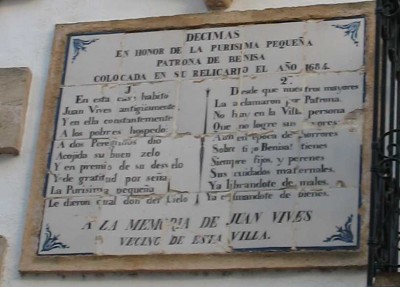 DECIMAS
EN HONOR DE LA PURISIMA PEQUEÑA
PATRONA DE BENISA
COLOCADA EN SU RELICARIO EL AÑO 1684.
1ª
En esta casa habitó
Juan Vives antiguamente
Y en ella constantemente
A los pobres hospedó
A dos Peregrinos dió
Acojida su buen zelo
Y en premio de su desvelo
Y de gratitud por seña
La Purisima pequeña
Le dieron cual don del Cielo
2ª
Desde que nuestros mayores
La aclamaron por Patrona
No hay en la Villa persona
Que no logre sus
Aun en época de
Sobre ti ¡o Benisa! tienes
Siempre fijos, y perenes
Sus cuidados maternales.
Ya librandote de males.
Ya colmandote de bienes.
A LA MEMORIA DE JUAN VIVES
VECINO DE ESTA VILLA.